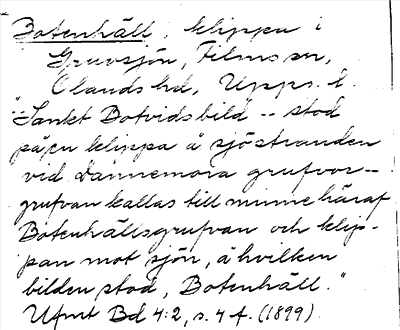 Botenhäll, klippa i
Gruvsjön, Films sn,
Olands hd, Upps. l.
"Sankt Botvidsbild -- stod
på en klippa å sjöstranden
vid Dannemora grufvor --
grufvan kallas till minne häraf
Botenhällsgrufvan och klip-
pan mot sjön, å hvilken
bilden stod, Botenhäll."
Ufmt Bd 4:2, s. 4 f. (1899).